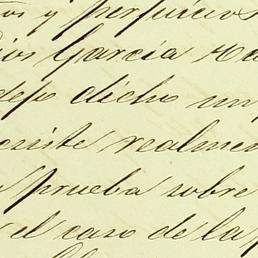 y perjuicios
García
dejo dicho un
existe realmen
prueba sobre
el caso de la p